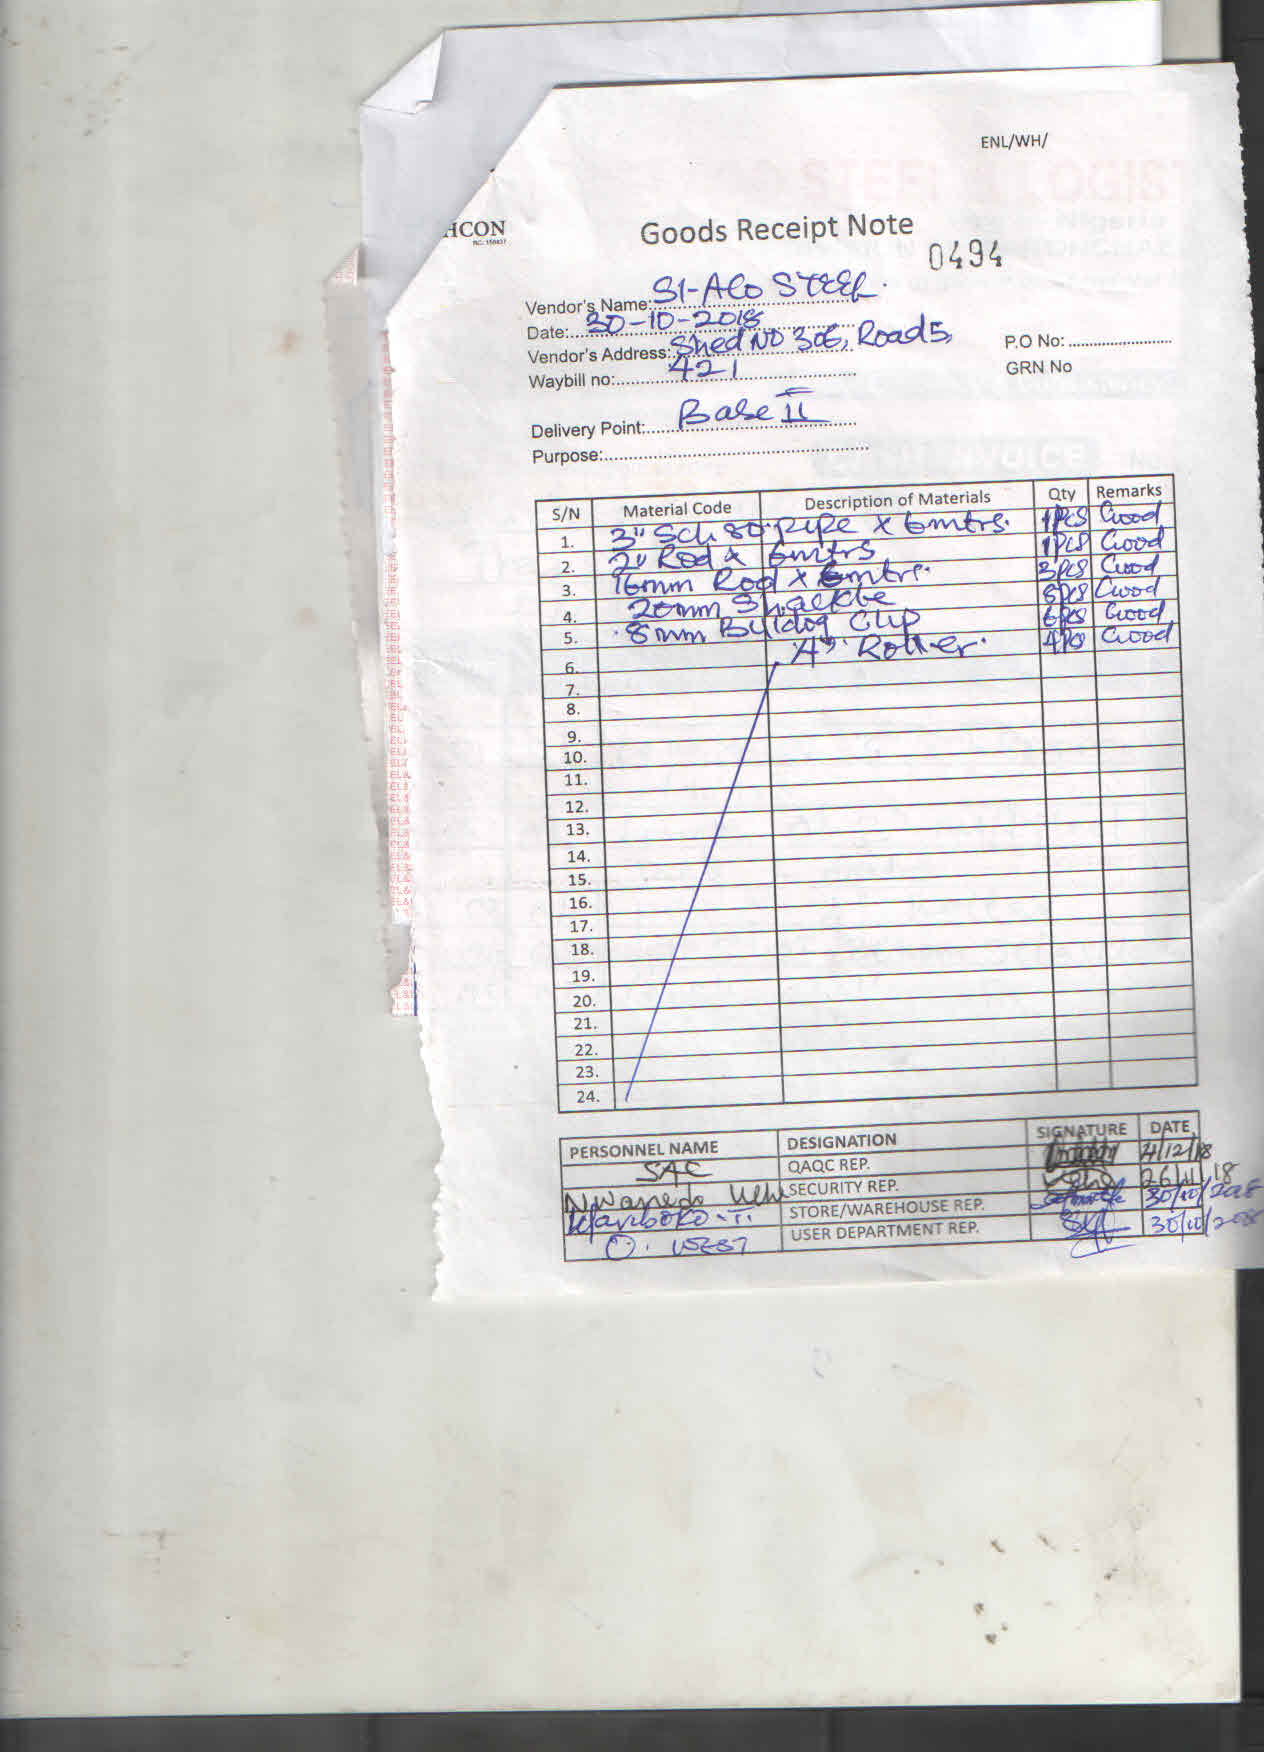 ENL/WH/
HCON
Goods Receipt Note
0494
Vendor's Name: SI-ALO STEEL.
Date: 30-10-2018
Vendor's Address: Shed NO 306, Road 5,
P.O No:
Waybill no: 421
GRN No
Delivery Point: Base II
Purpose:
S/N Material Code Description of Materials Qty Remarks
1. 3" Sch 80 pipe x 6mtrs. 1pcs Good
2. 2" Rod x 6mtrs 1pcs Good
3. 16mm Rod x 6mtrs. 3pcs Good
4. 20mm Shackle 8pcs Good
5. 8mm Bulldog Clip 6pcs Good
6. "A" Roller. 4pcs Good
7.
8.
9.
10.
11.
12.
13.
14.
15.
16.
17.
18.
19.
20.
21.
22.
23.
24.
PERSONNEL NAME DESIGNATION SIGNATURE DATE
SAC QAQC REP. 4/12/18
Nwanedo SECURITY REP. 26/11/18
STORE/WAREHOUSE REP. 30/10/2018
O. WEST USER DEPARTMENT REP. 30/10/2018